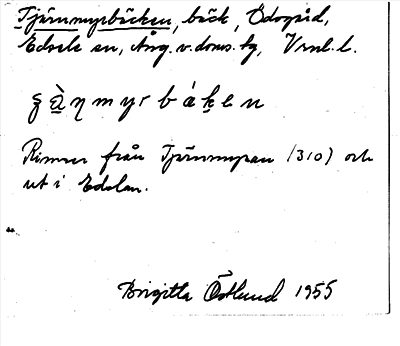 Tjärnmyrbäcken, bäck, Ödsgård,
Edsele sn, Ång. v. doms. tg, Vrnl. l.
ʒ à ŋ m y r b á k e n
Rinner från Tjärnmyran (310) och
ut i Edslan.
Birgitta Östlund 1955